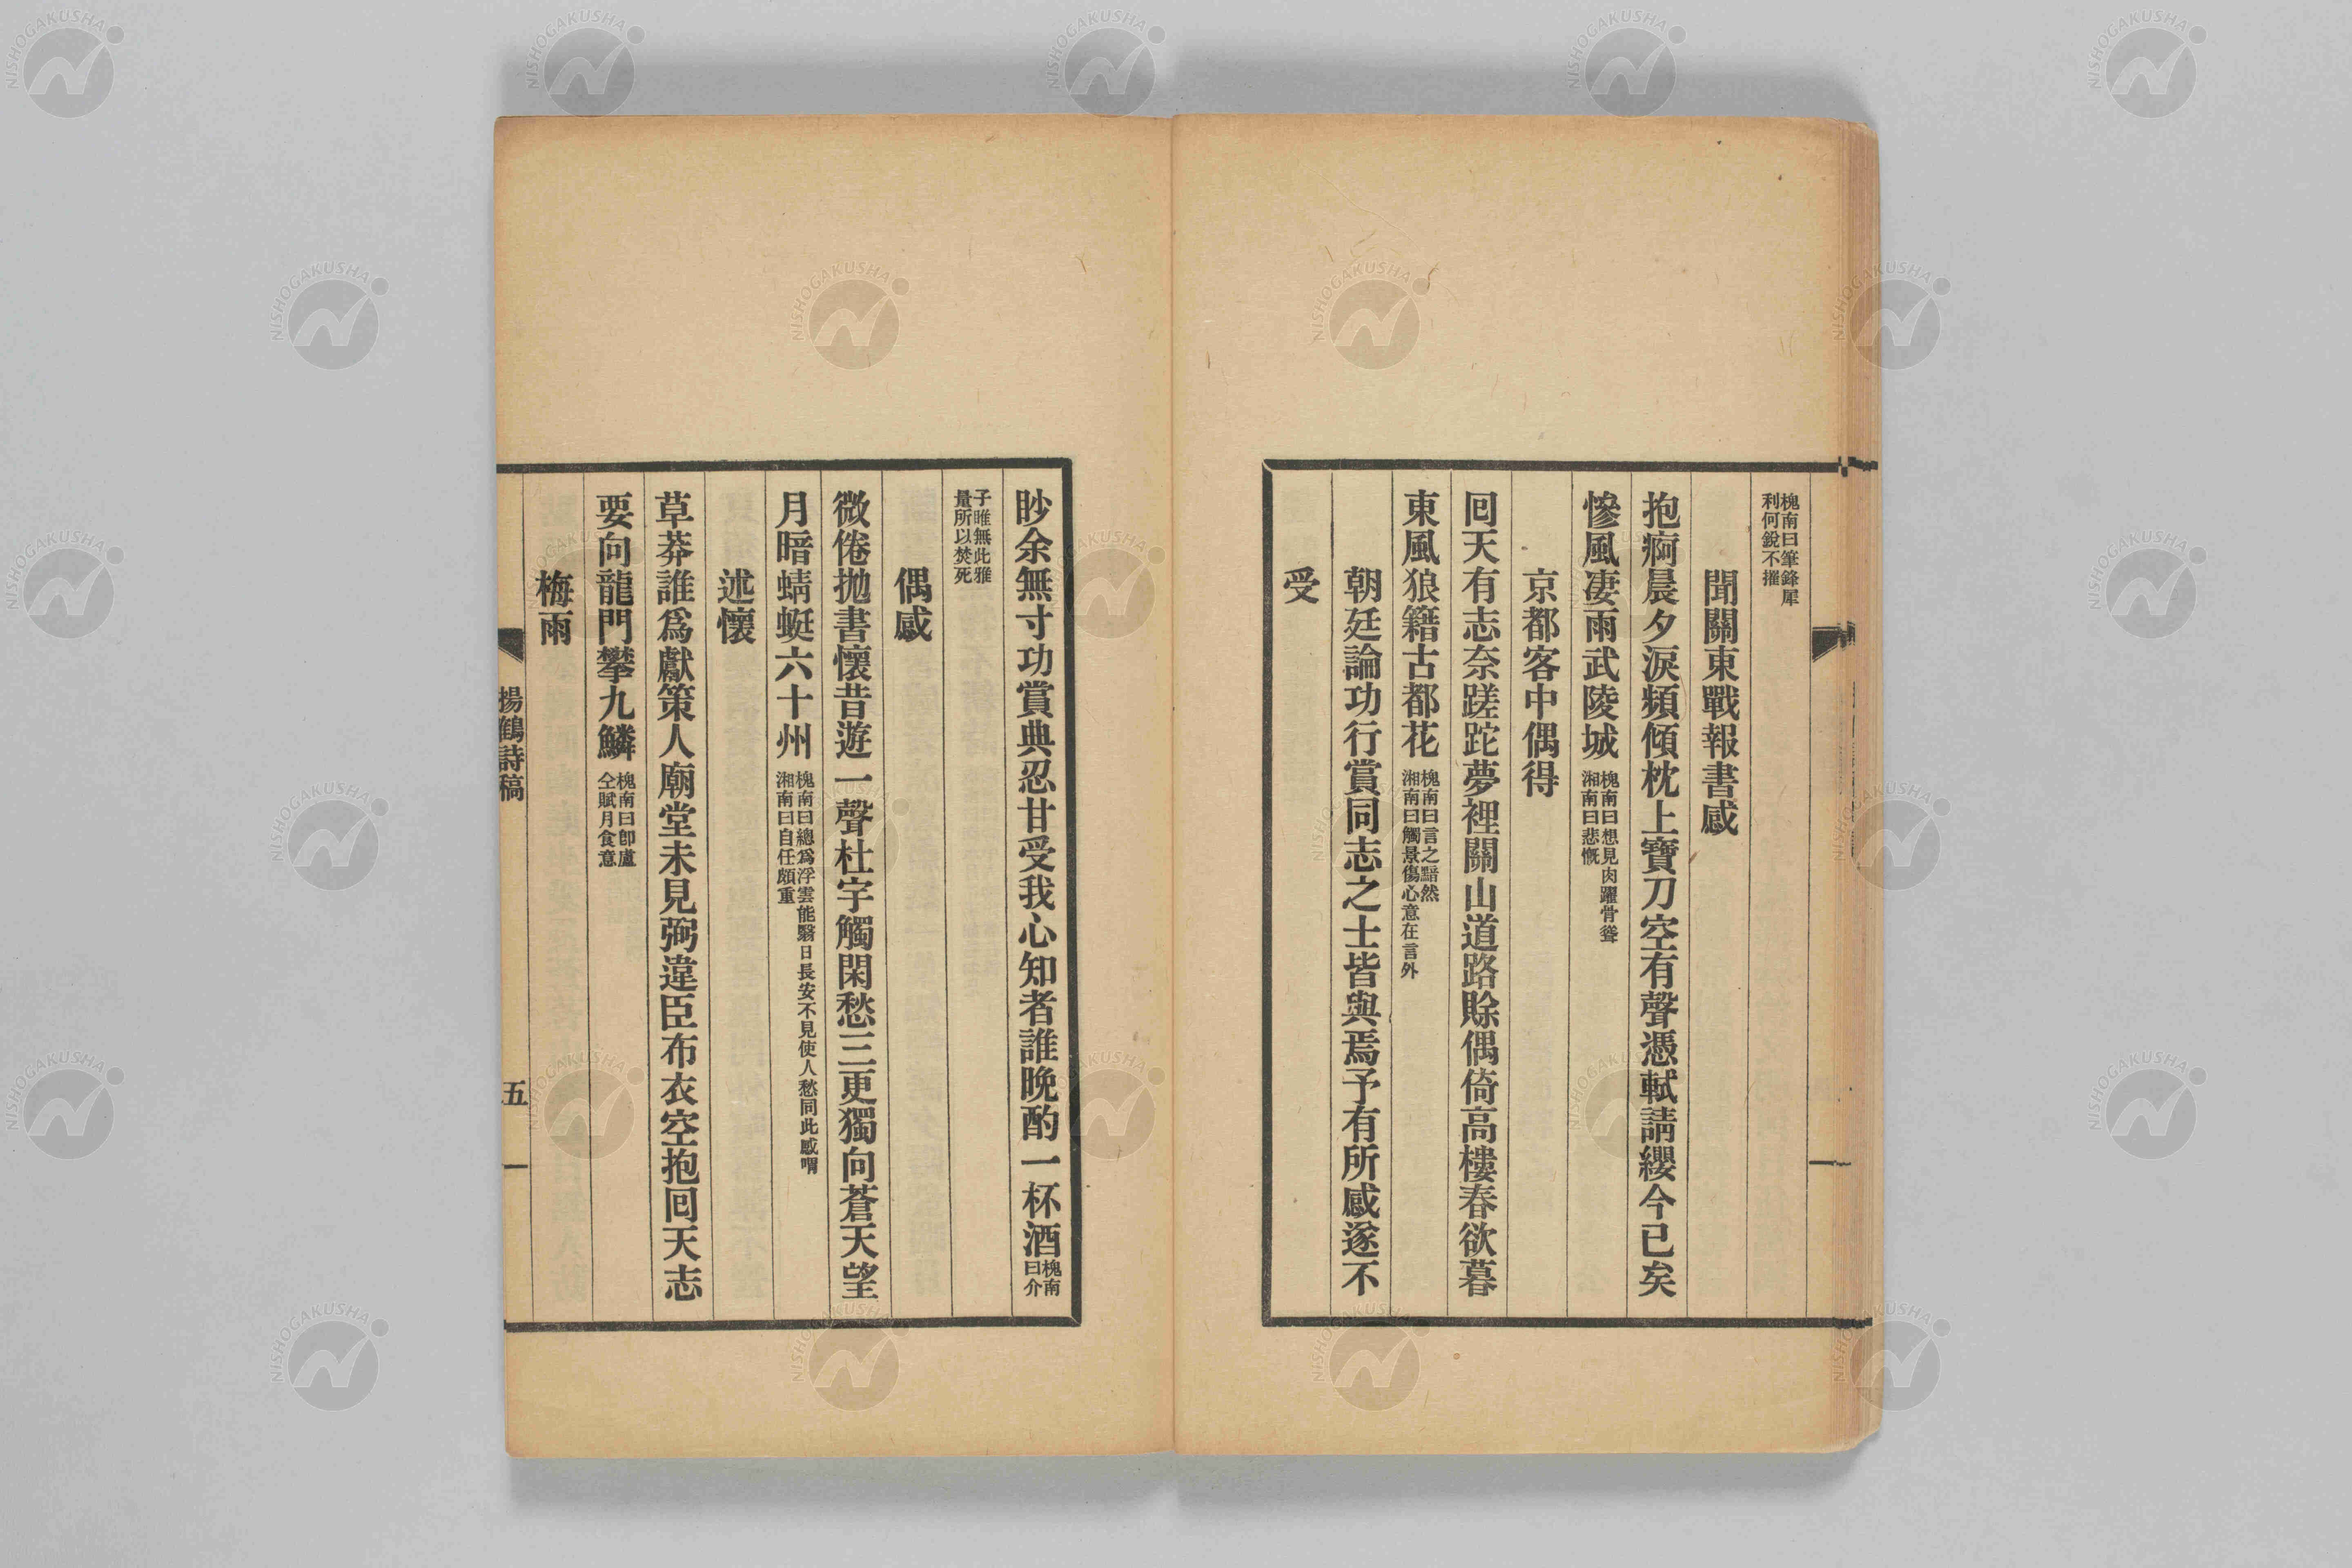 槐南曰筆鋒犀
利何銳不摧
聞關東戰報書感
抱痾晨夕淚頻傾枕上寶刀空有聲憑軾請纓今已矣
慘風凄雨武陵城
槐南曰想見肉躍骨聳
湘南曰悲慨
京都客中偶得
回天有志奈蹉跎夢裡關山道路賒偶倚高樓春欲暮
東風狼籍古都花
槐南曰言之黯然
湘南曰觸景傷心意在言外
朝廷論功行賞同志之士皆與焉予有所感遂不
受
眇余無寸功賞典忍甘受我心知者誰晚酌一杯酒
槐南
曰介
子唯無此雅
量所以焚死
偶感
微倦拋書懷昔遊一聲杜宇觸閑愁三更獨向蒼天望
月暗蜻蜓六十州
槐南曰總爲浮雲能翳日長安不見使人愁同此感喟
湘南曰自任頗重
述懷
草莽誰爲獻策人廟堂未見弼違臣布衣空抱回天志
要向龍門攀九鱗
槐南曰卽盧
仝賦月食意
梅雨
揚鶴詩稿
五
NISHOGAKUSHA